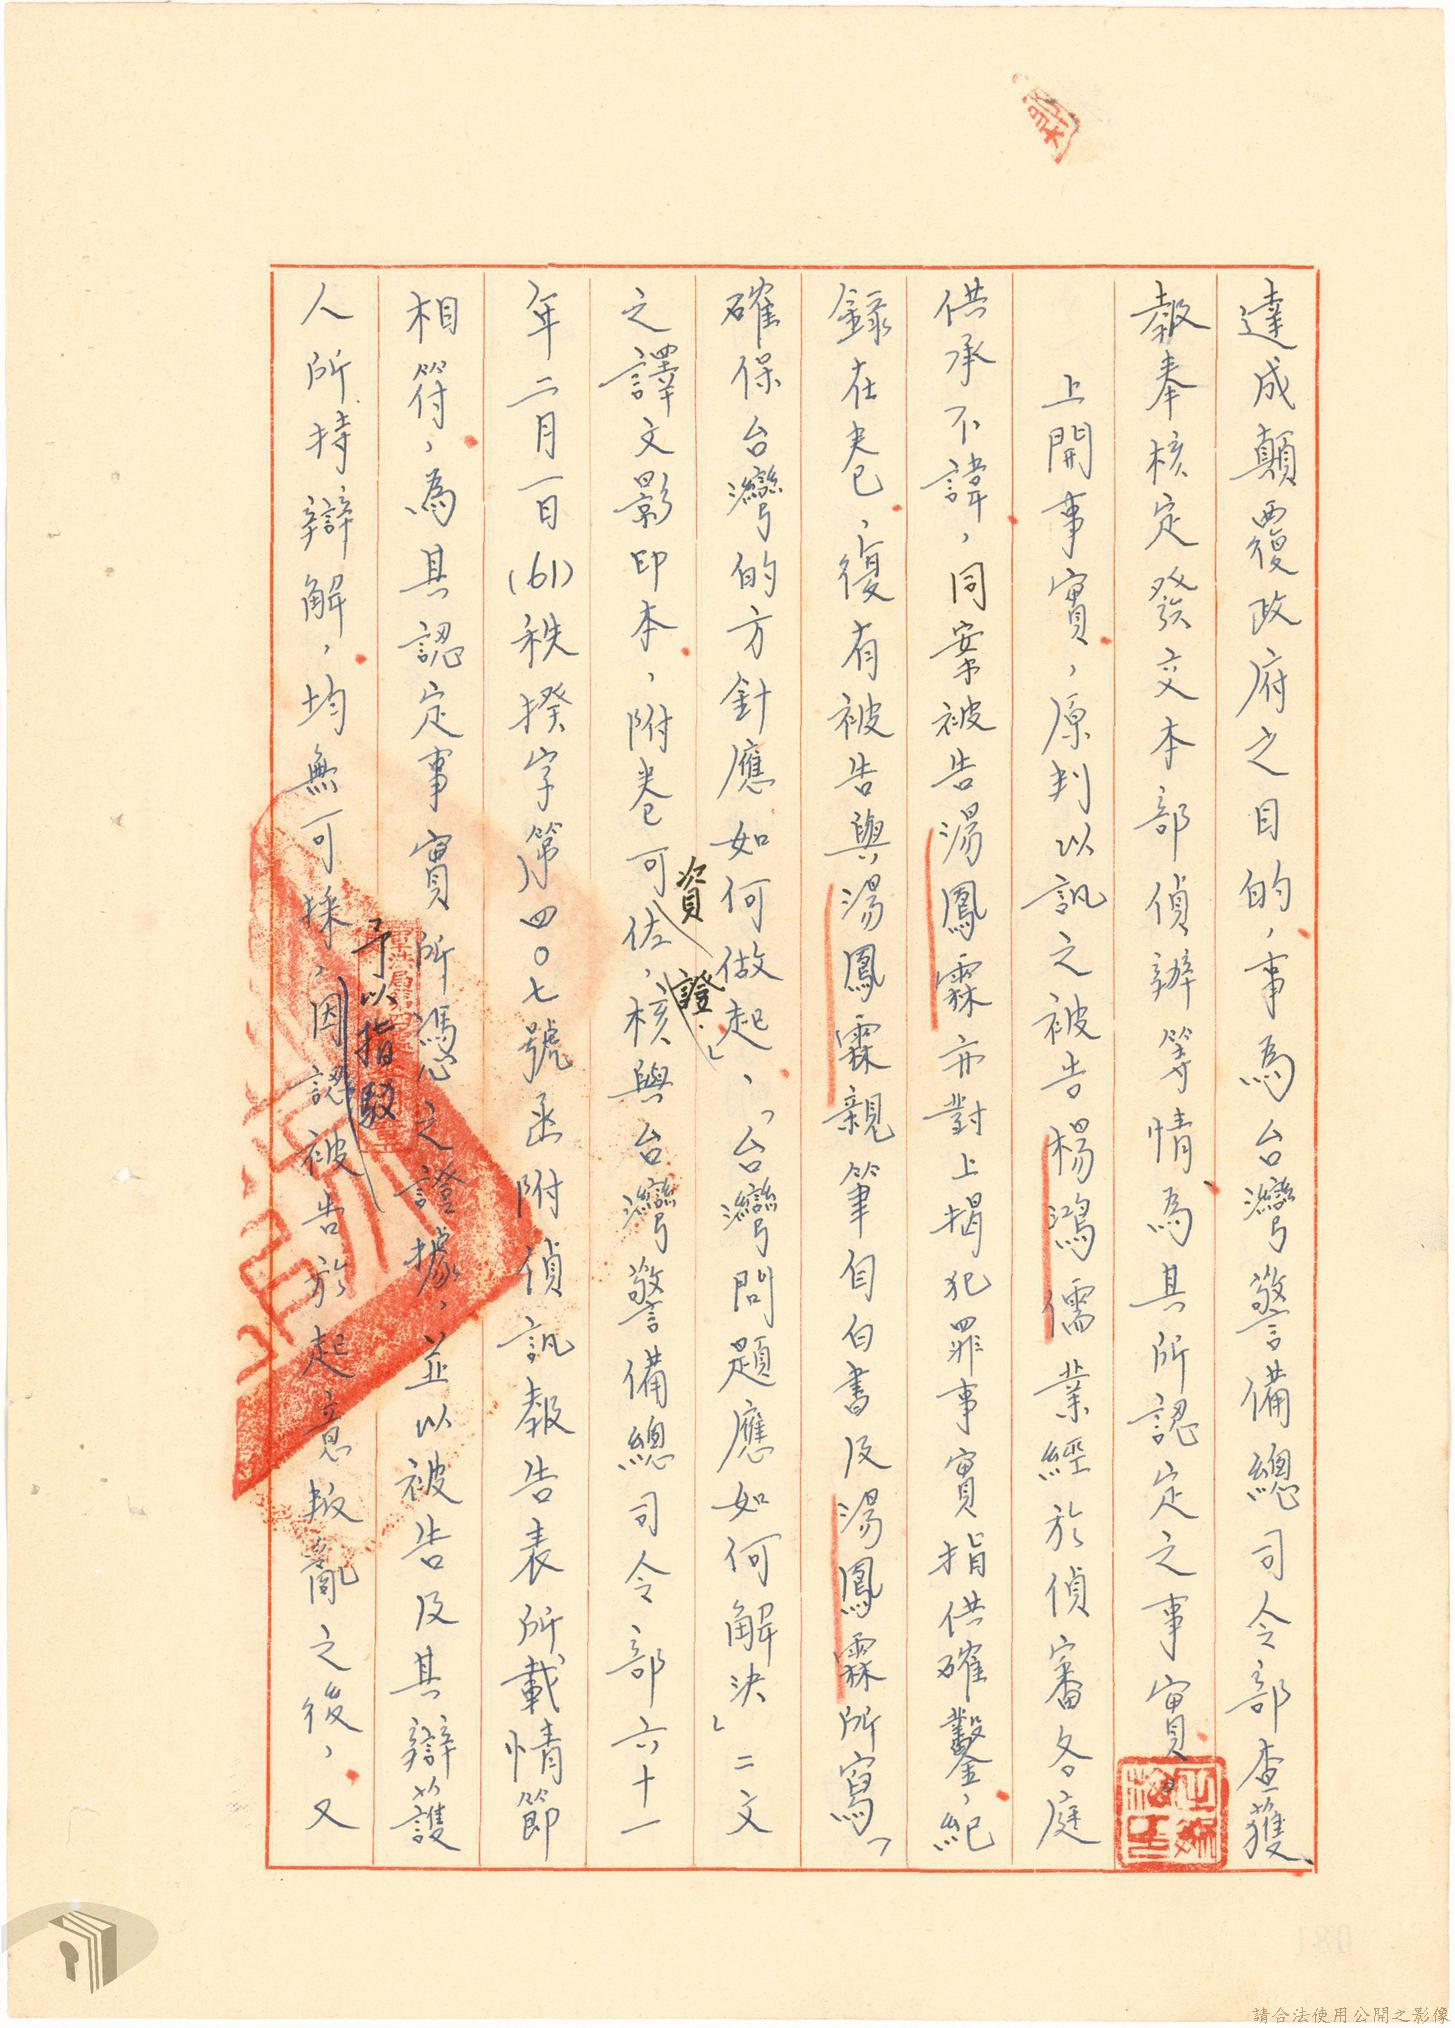 達成顛覆政府之目的，事為台灣警備總司令部查獲、
報奉核定發交本部偵辦等情為其所認定之事實。
上開事實，原判以訊之被告楊鴻儒業經於偵審各庭
供承不諱，同案被告湯鳳霖亦對上揭犯罪事實指供確鑿，紀
錄在卷，復有被告與湯鳳霖親筆自白書及湯鳳霖所寫「
確保台灣的方針應如何做起」、「台灣問題應如何解決」二文
之譯文影印本，附卷可資佐證，核與台灣警備總司令部六十一
年二月一日(61)秩揆字第四〇七號函附偵訊報告表所載情節
相符，為其認定事實所憑之證據，並以被告及其辯護
人所持辯解，均無可採，予以指駁因認被告於起意叛亂之後，又
請合法使用公開之影像